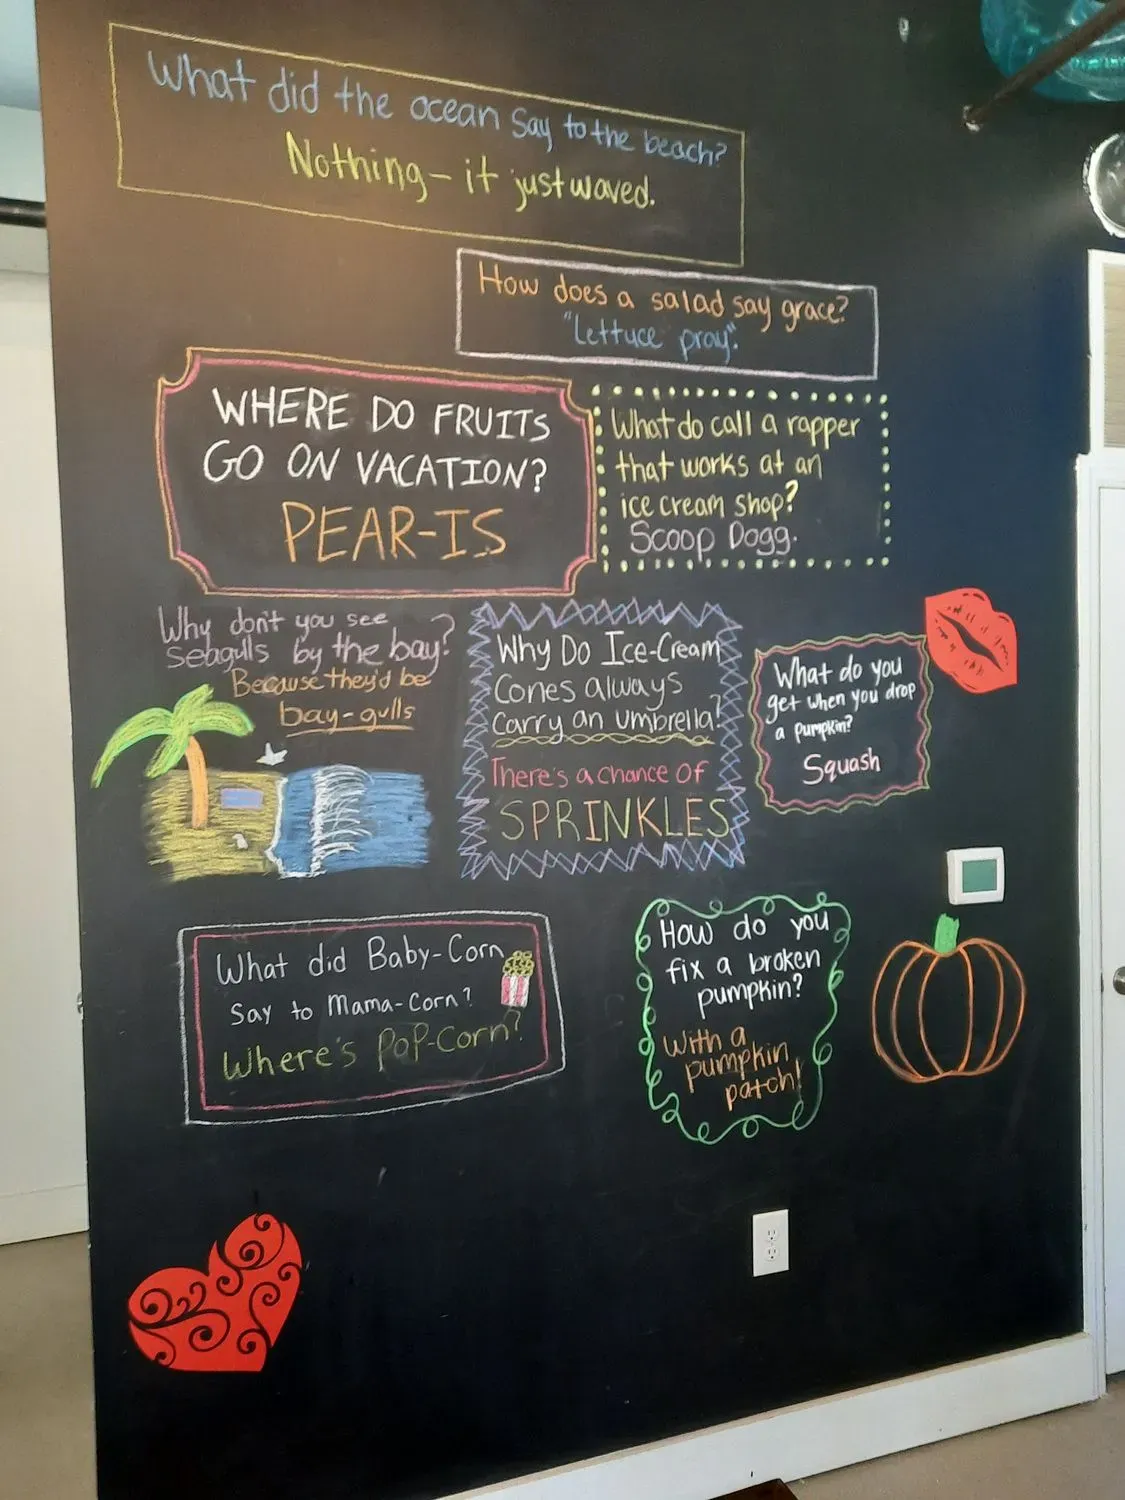 What did the ocean say to the beach?
Nothing - it just waved.
How does a salad say grace?
"lettuce pray".
WHERE DO FRUITS
GO ON VACATION?
PEAR-IS
What do call a rapper
that works at an
ice cream shop?
Scoop Dogg.
Why don't you see
seagulls by the bay?
Because they'd be
bay-gulls
Why Do Ice-Cream
Cones always
carry an umbrella?
There's a chance OF
SPRINKLES
What do you
get when you drop
a pumpkin?
Squash
What did Baby-Corn
say to Mama-Corn?
Where's Pop-Corn?
How do you
fix a broken
pumpkin?
With a
pumpkin
patch!